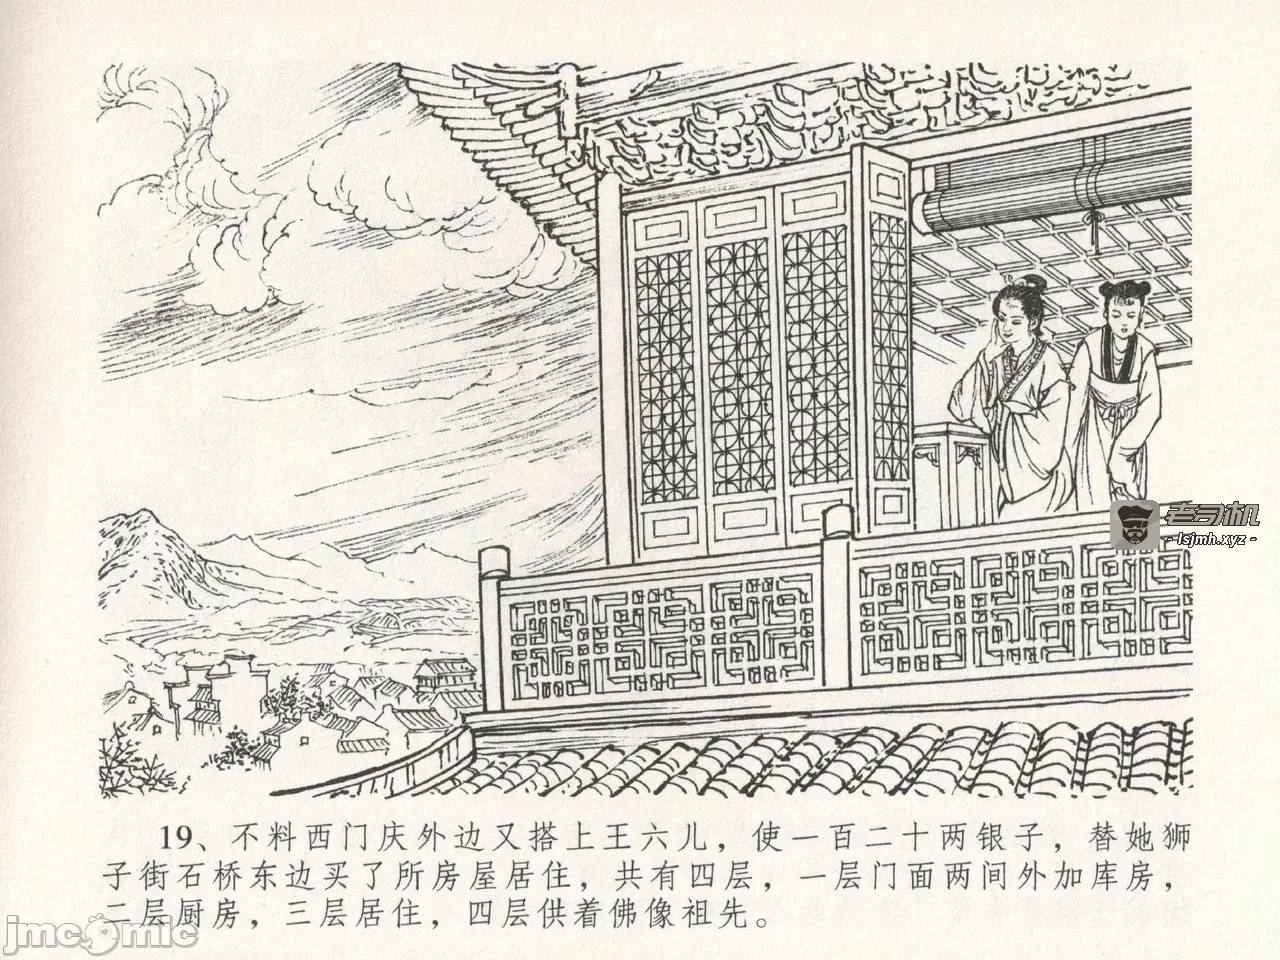 老司机
- lsjmh.xyz -
19、不料西门庆外边又搭上王六儿，使一百二十两银子，替她狮
子街石桥东边买了所房屋居住，共有四层，一层门面两间外加库房，
二层厨房，三层居住，四层供着佛像祖先。
jmcomic